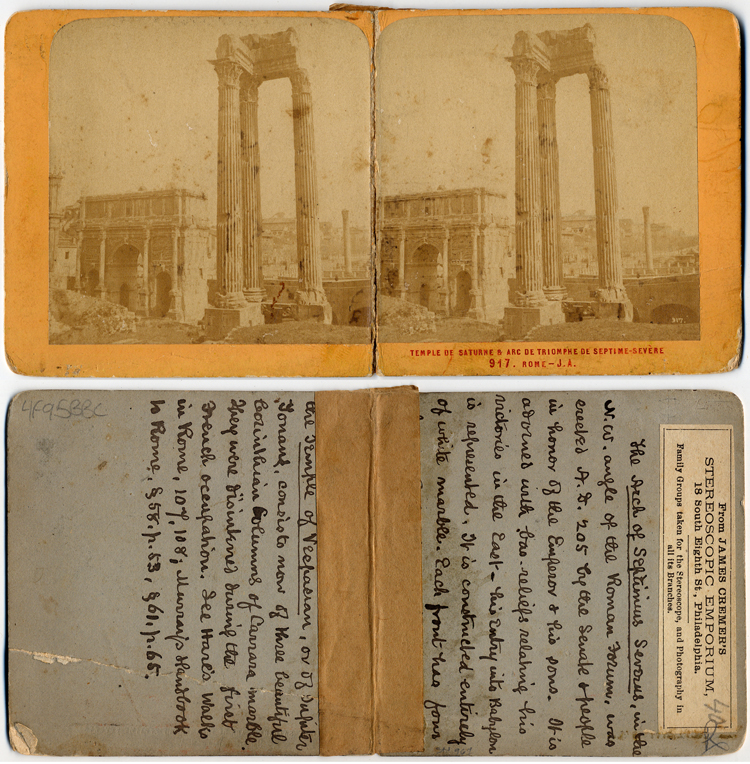 TEMPLE DE SATURNE & ARC DE TRIOMPHE DE SEPTIME-SEVÈRE
917. ROME – J.A.
317.
4F95BBC
From JAMES CREMER'S
STEREOSCOPIC EMPORIUM,
18 South Eighth St., Philadelphia.
Family Groups taken for the Stereoscope, and Photography in
all its Branches.
The Arch of Septimius Severus, in the
N.W. angle of the Roman Forum, was
erected A.D. 205 by the Senate & people
in honor of the Emperor & his sons. It is
adorned with bas-reliefs relating his
victories in the East – his Entry into Babylon
is represented. It is constructed entirely
of white marble. Each front has four
the Temple of Vespasian, or of Jupiter
Tonans, consists now of three beautiful
Corinthian Columns of Carrara marble.
They were disinterred during the first
French occupation. See Hare's Walks
in Rome, 107, 108; Murray's Handbook
to Rome, § 58, p. 53, § 61, p. 65.